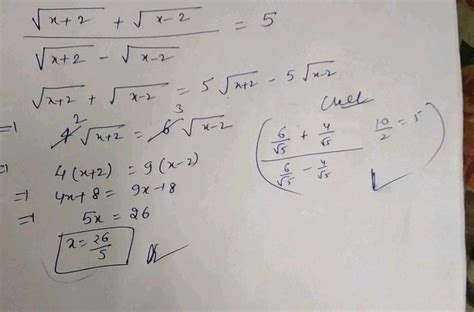 √x+2 + √x-2 / √x+2 - √x-2 = 5
√x+2 + √x-2 = 5√x+2 - 5√x-2
⇒ 4 2 √x+2 = 6 3 √x-2
⇒ 4(x+2) = 9(x-2)
⇒ 4x+8 = 9x+8
⇒ 5x = 26
x = 26/5
(6/√5 + 4/√5 / 6/√5 - 4/√5 10/2 = 5)